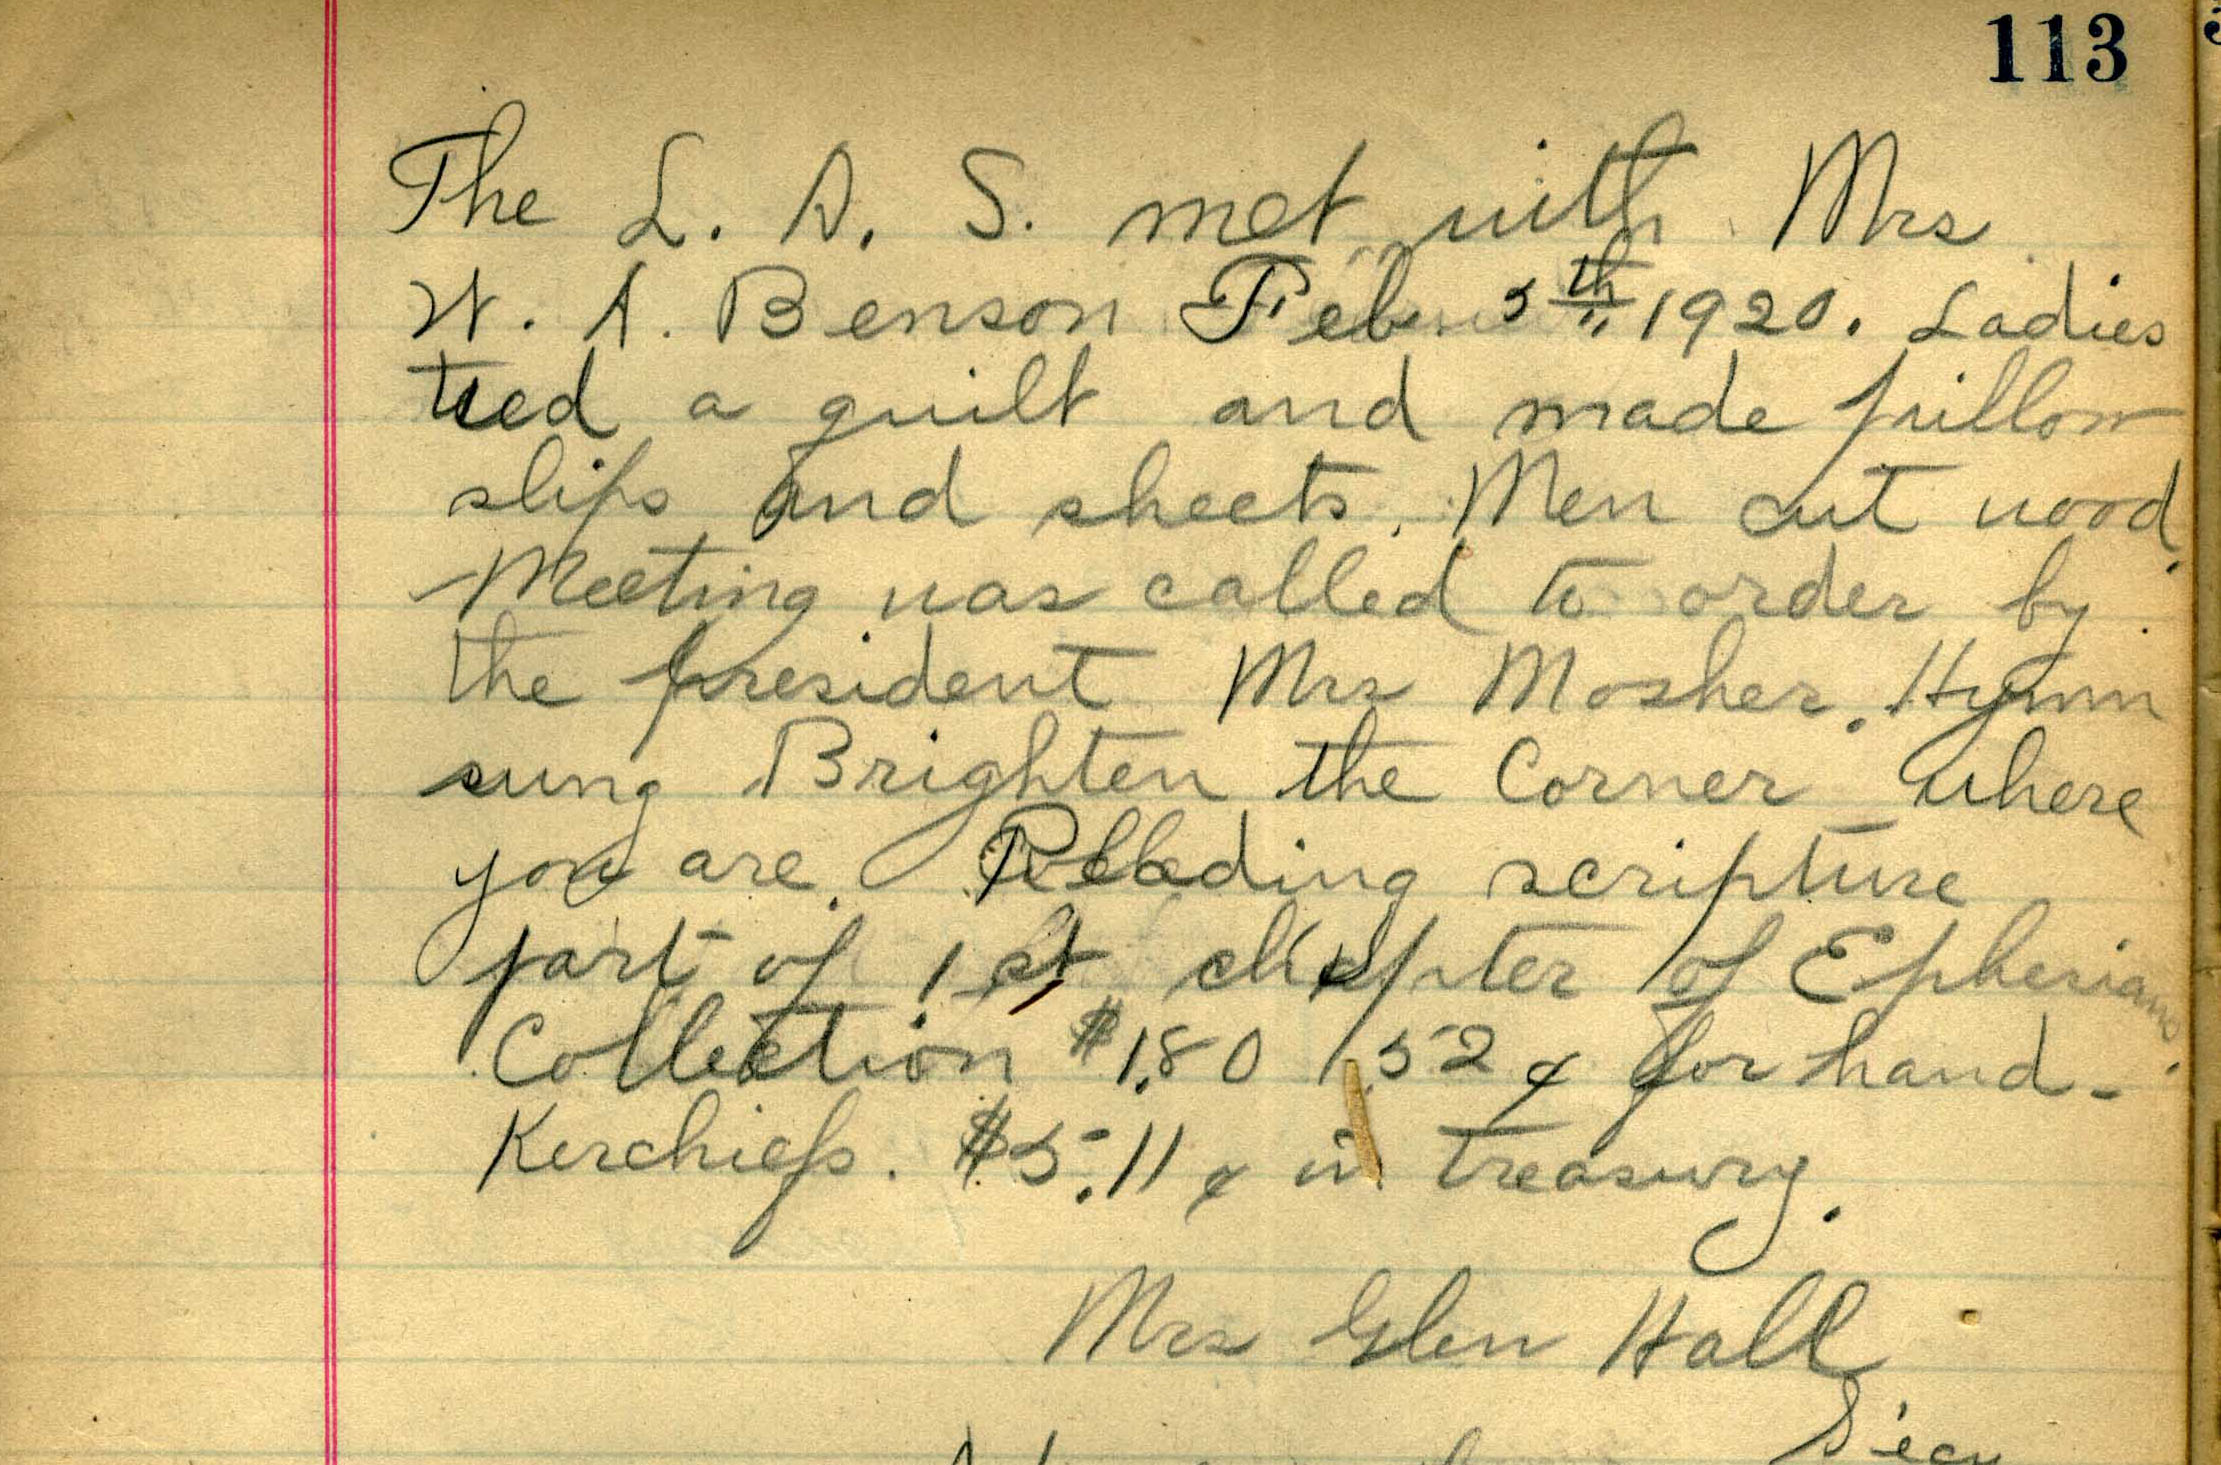 113
The L. A. S. met with Mrs
W. A. Benson Feb. 5th 1920. Ladies
tied a quilt and made pillow
slips and sheets. Men cut wood.
Meeting was called to order by
the president Mrs Mosher. Hymn
sung Brighten the Corner Where
you are. Reading scripture
part of 1st chapter of Ephesians.
Collection $1.80 52¢ for hand-
Kerchiefs. $5.11¢ in treasury.
Mrs Glen Hall
Secy